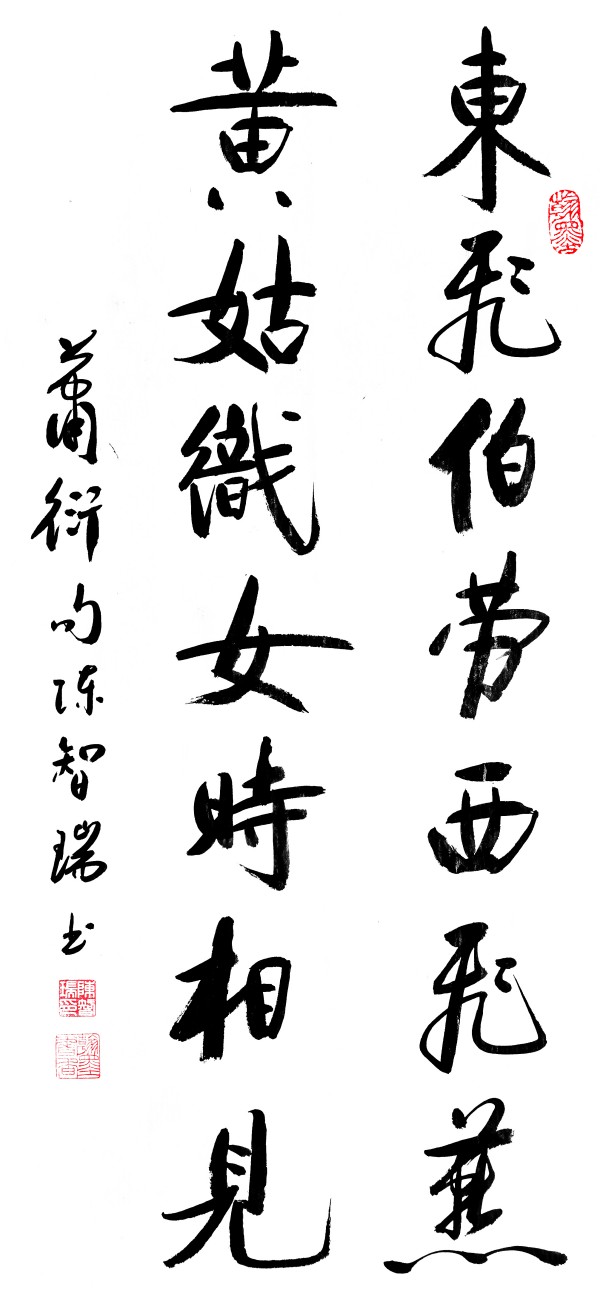 東飛伯勞西飛燕
黄姑織女時相見
蕭衍句陳智瑞書
陳智瑞印